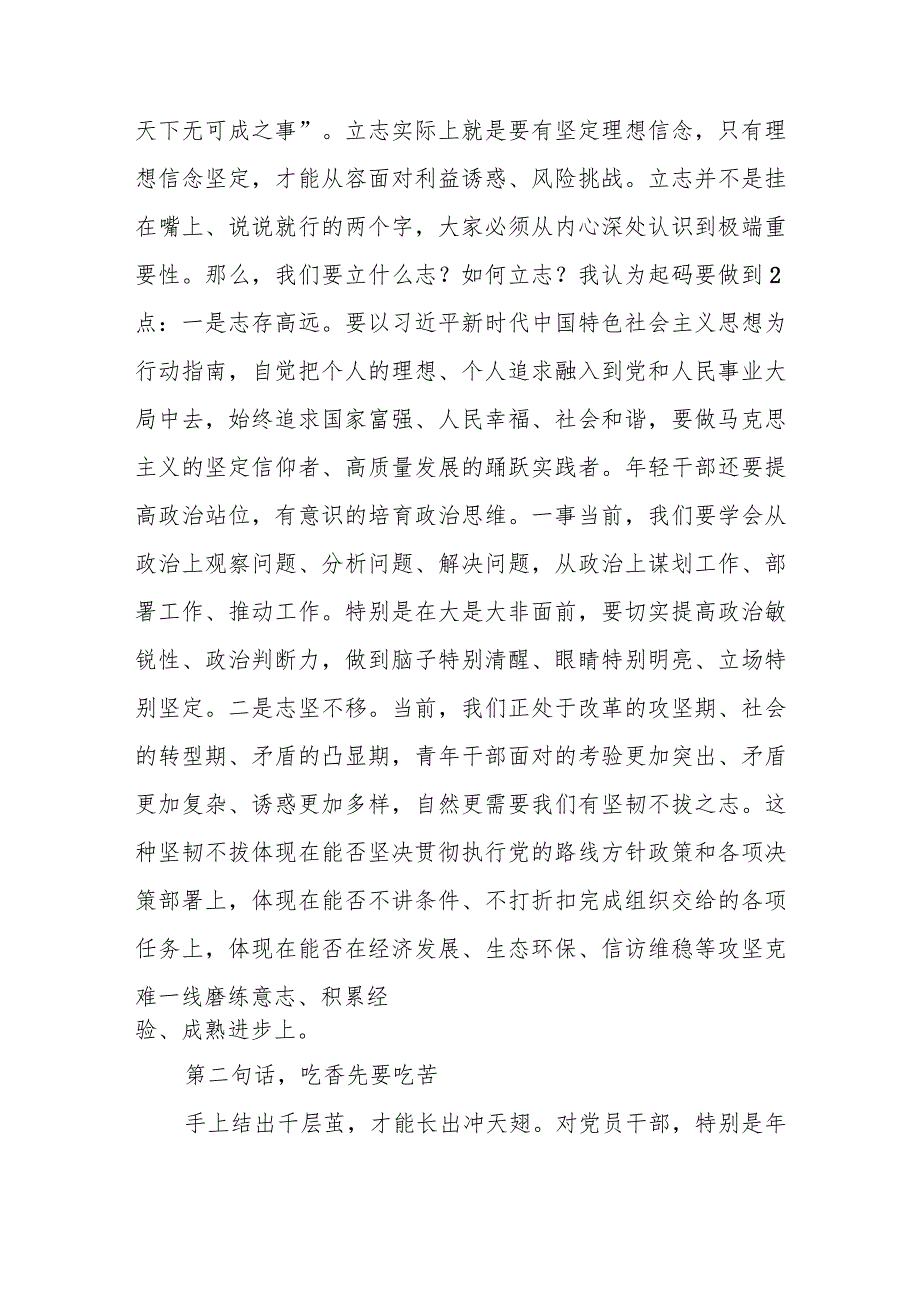 天下无可成之事”。立志实际上就是要有坚定理想信念，只有理
想信念坚定，才能从容面对利益诱惑、风险挑战。立志并不是挂
在嘴上、说说就行的两个字，大家必须从内心深处认识到极端重
要性。那么，我们要立什么志？如何立志？我认为起码要做到 2
点：一是志存高远。要以习近平新时代中国特色社会主义思想为
行动指南，自觉把个人的理想、个人追求融入到党和人民事业大
局中去，始终追求国家富强、人民幸福、社会和谐，要做马克思
主义的坚定信仰者、高质量发展的踊跃实践者。年轻干部还要提
高政治站位，有意识的培育政治思维。一事当前，我们要学会从
政治上观察问题、分析问题、解决问题，从政治上谋划工作、部
署工作、推动工作。特别是在大是大非面前，要切实提高政治敏
锐性、政治判断力，做到脑子特别清醒、眼睛特别明亮、立场特
别坚定。二是志坚不移。当前，我们正处于改革的攻坚期、社会
的转型期、矛盾的凸显期，青年干部面对的考验更加突出、矛盾
更加复杂、诱惑更加多样，自然更需要我们有坚韧不拔之志。这
种坚韧不拔体现在能否坚决贯彻执行党的路线方针政策和各项决
策部署上，体现在能否不讲条件、不打折扣完成组织交给的各项
任务上，体现在能否在经济发展、生态环保、信访维稳等攻坚克
难一线磨练意志、积累经
验、成熟进步上。
第二句话，吃香先要吃苦
手上结出千层茧，才能长出冲天翅。对党员干部，特别是年